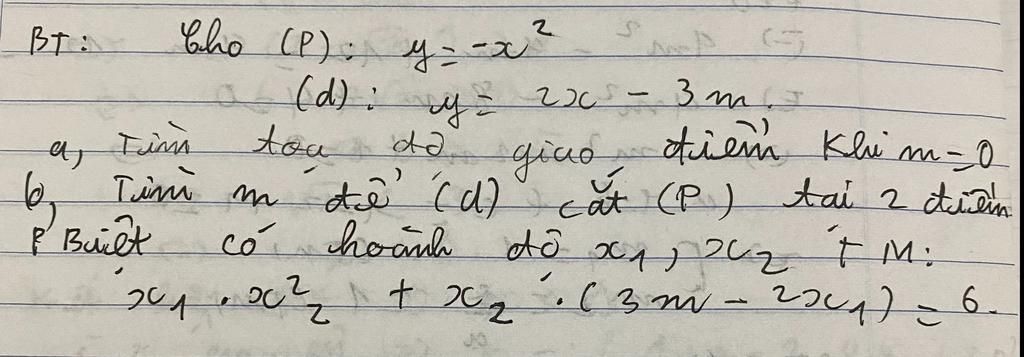 BT: Cho (P): y = -x²
(d): y = 2x - 3m.
a, Tìm tọa độ giao điểm khi m = 0
b, Tìm m để (d) cắt (P) tại 2 điểm
P Biệt có hoành độ x₁, x₂ TM:
x₁ . x₂² + x₂ . (3m - 2x₁) = 6.